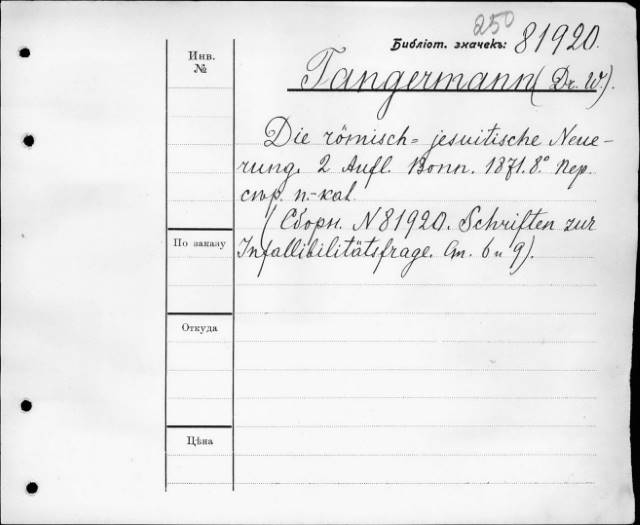 250
Библіот. значекъ: 81920.
Инв.
№
Tangermann (Dr. W.).
Die römisch= jesuitische Neue-
rung. 2 Aufl. Bonn. 1871. 8° Пер.
стр. п.-kal.
(Сборн. N 81920. Schriften zur
По заказу
Infallibilitätsfrage. Ст. 6 и 9).
Откуда
Цѣна